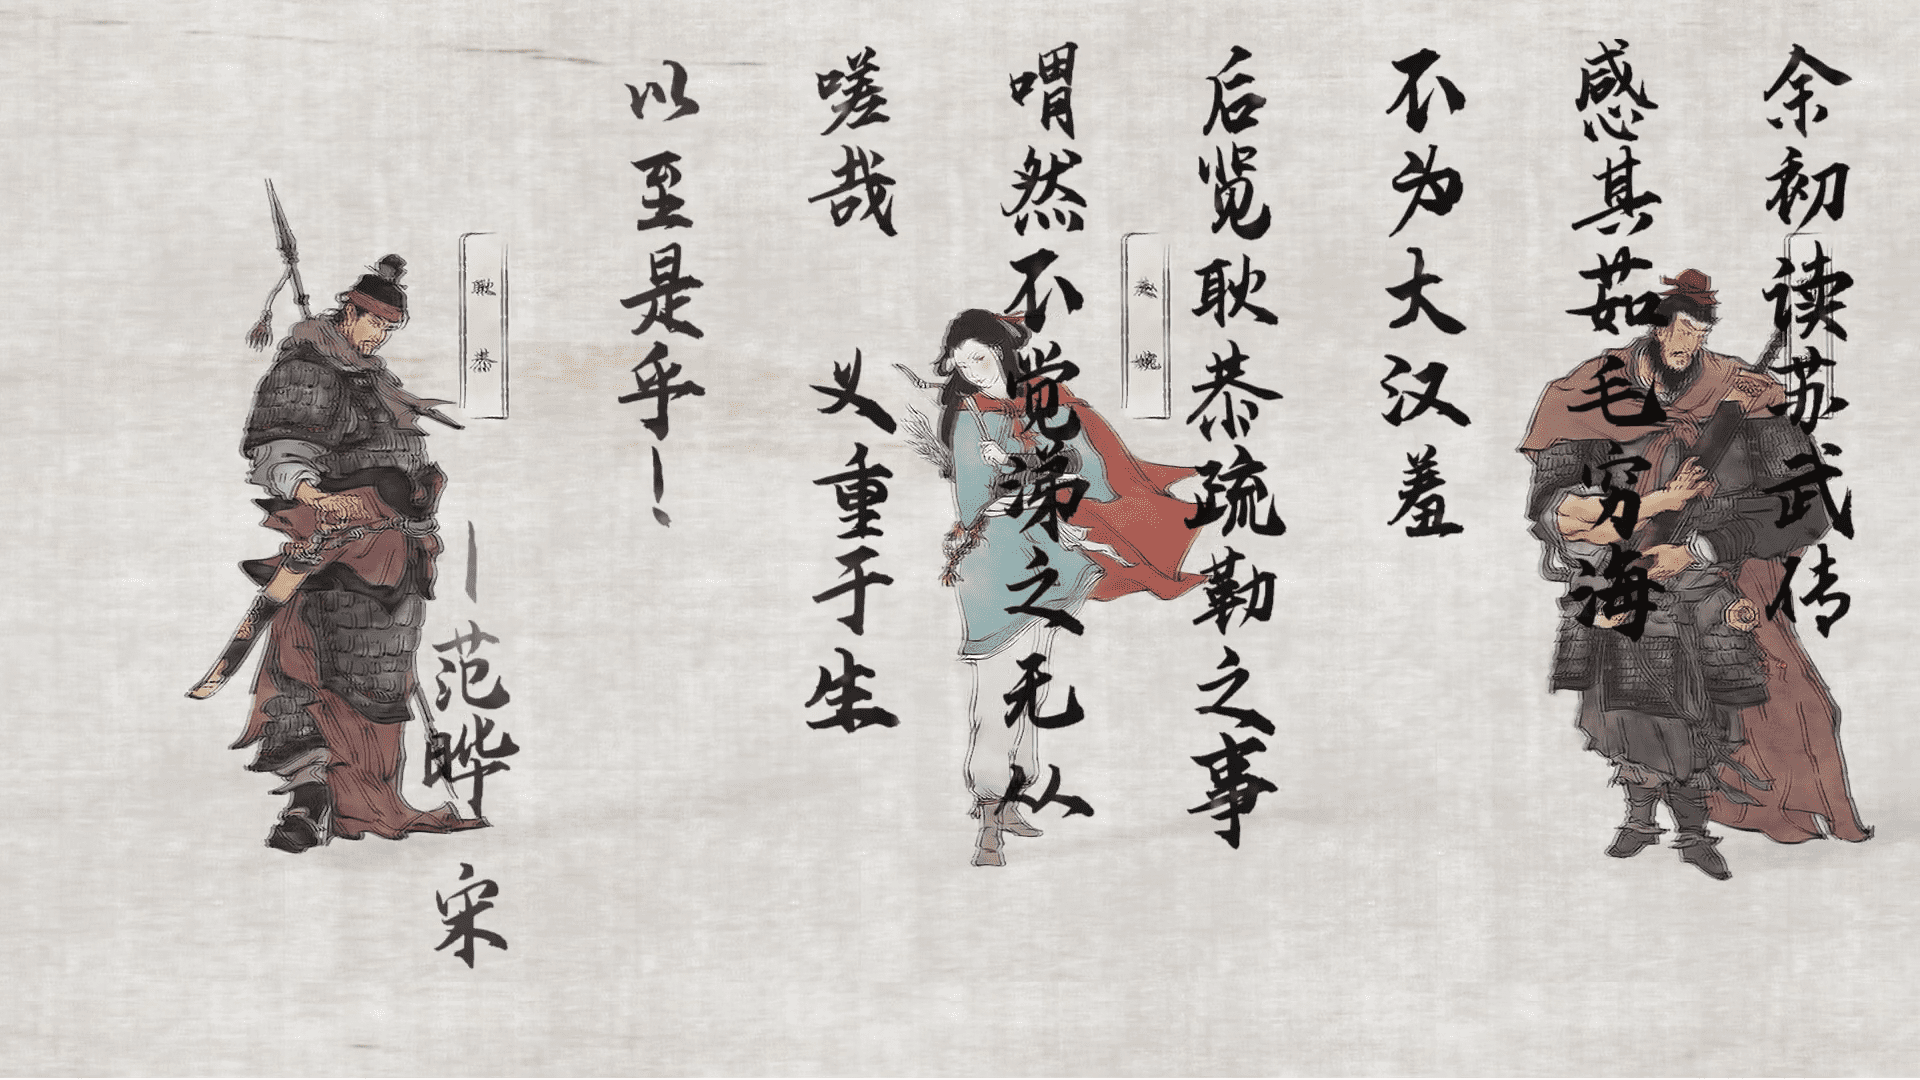 余初读苏武传
感其茹毛穷海
不为大汉羞
后览耿恭疏勒之事
喟然不觉涕之无从
嗟哉 义重于生
以至是乎！
—范晔 宋
耿恭